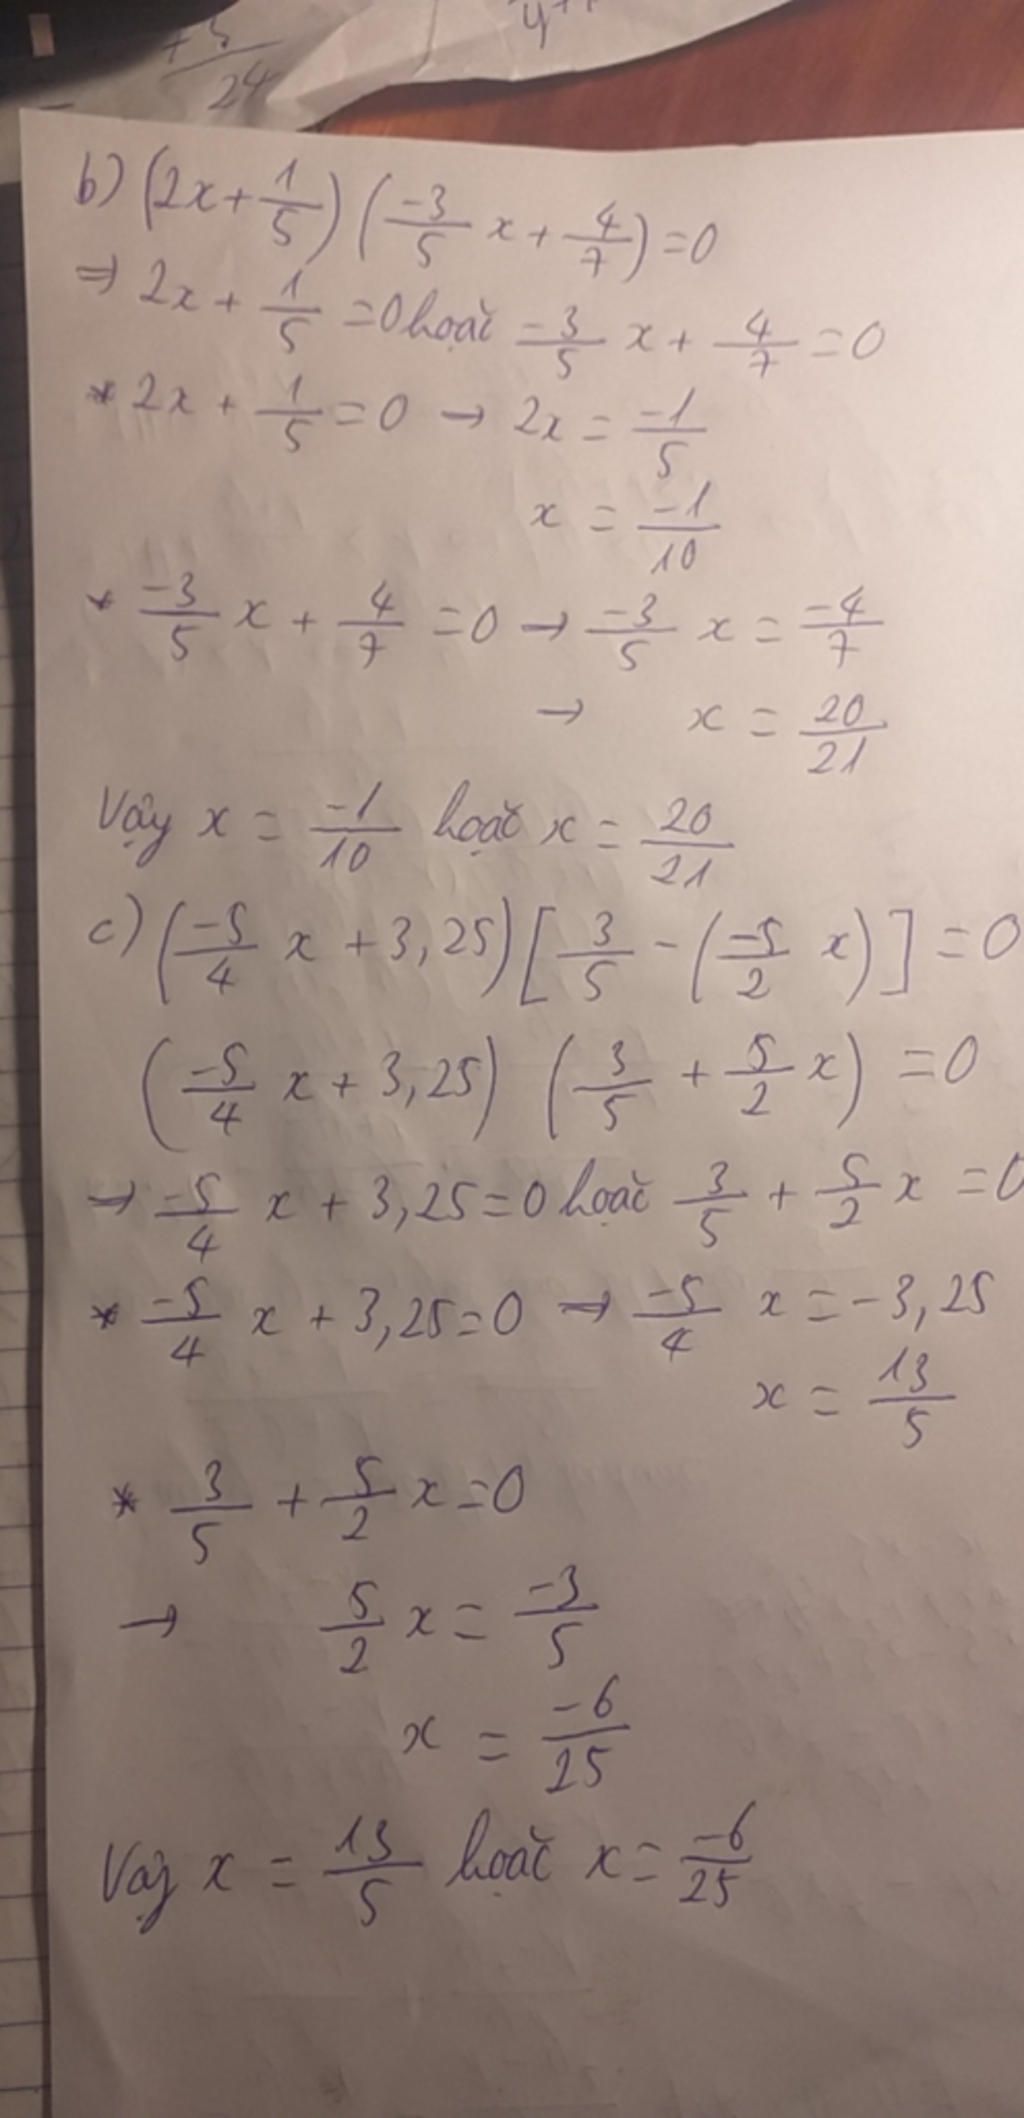 +5/24
4
b) (2x + 1/5) (-3/5 x + 4/7) = 0
⇒ 2x + 1/5 = 0 hoặc -3/5 x + 4/7 = 0
* 2x + 1/5 = 0 → 2x = -1/5
x = -1/10
* -3/5 x + 4/7 = 0 → -3/5 x = -4/7
→ x = 20/21
Vậy x = -1/10 hoặc x = 20/21
c) (-5/4 x + 3,25) [3/5 - (-5/2 x)] = 0
(-5/4 x + 3,25) (3/5 + 5/2 x) = 0
→ -5/4 x + 3,25 = 0 hoặc 3/5 + 5/2 x = 0
* -5/4 x + 3,25 = 0 → -5/4 x = -3,25
x = 13/5
* 3/5 + 5/2 x = 0
→ 5/2 x = -3/5
x = -6/25
Vậy x = 13/5 hoặc x = -6/25